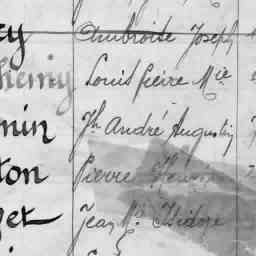 ey Ambroise Joseph
hemy Louis pierre Mie
min Jh André Augustin
ton Pierre
et Jean Me Isidore